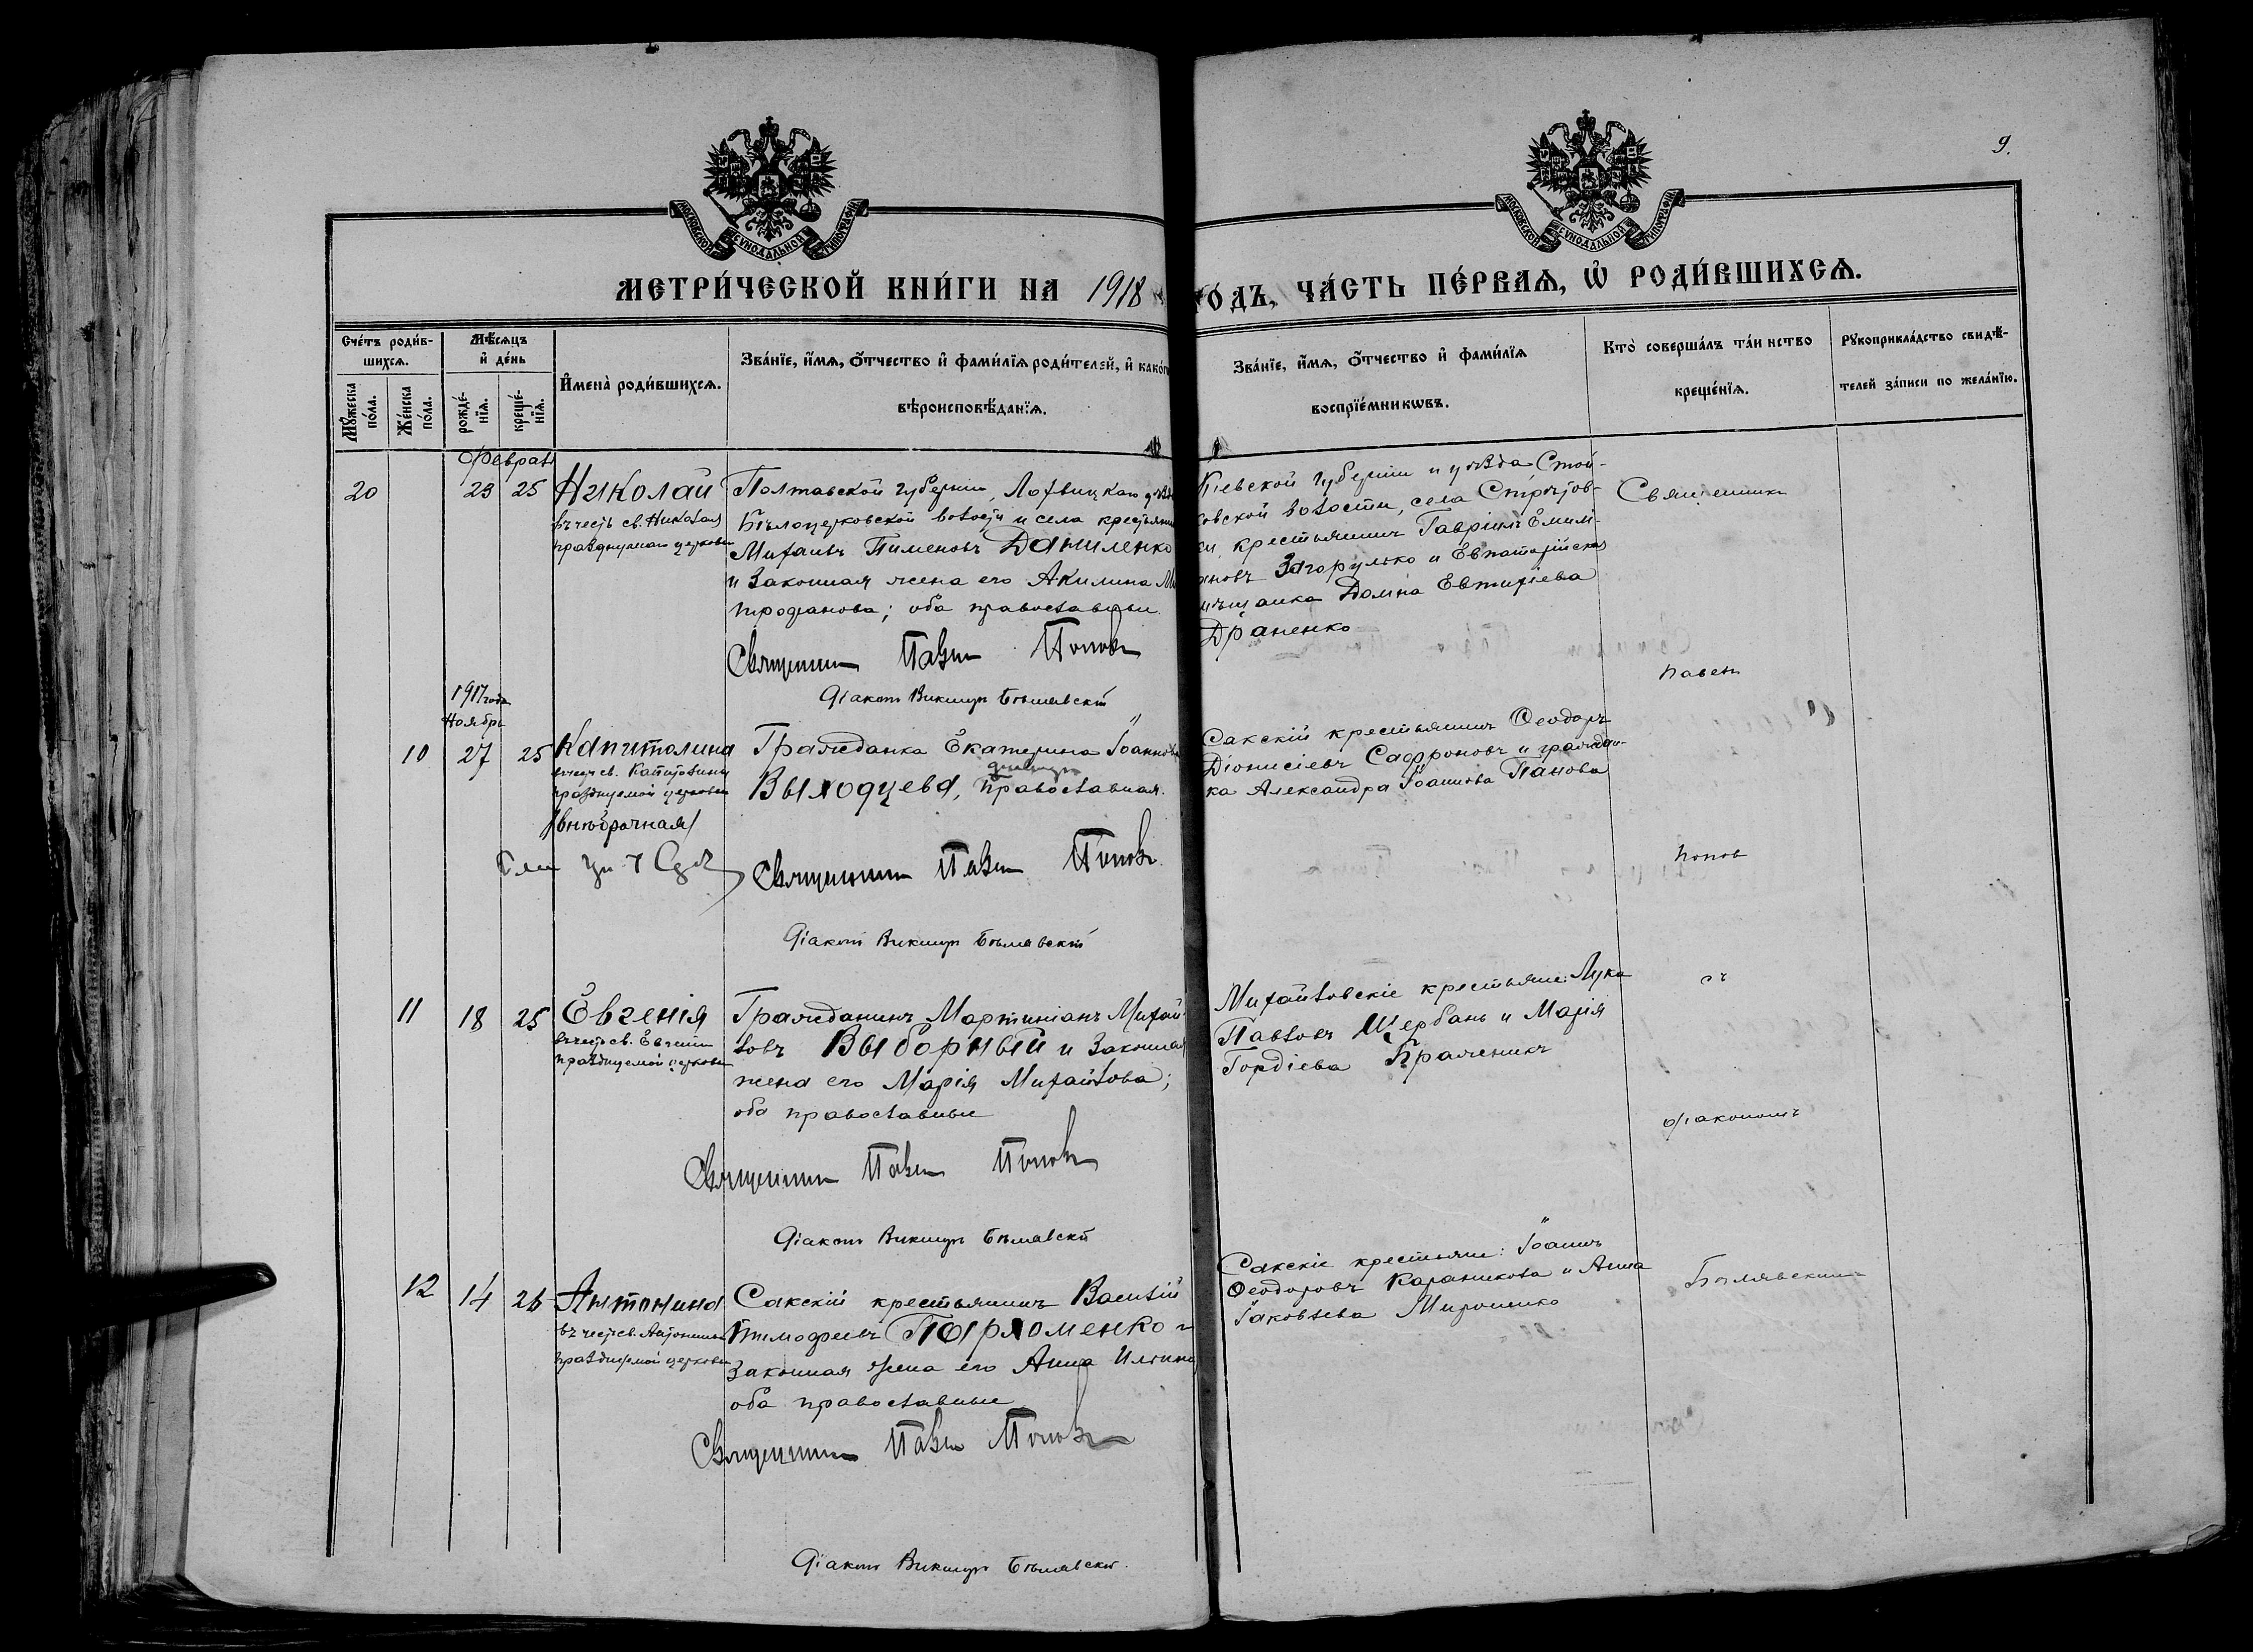 9.
МОСКОВСКОЙ СѴНОДАЛЬНОЙ ТИПОГРАФІИ
МОСКОВСКОЙ СѴНОДАЛЬНОЙ ТИПОГРАФІИ
МЕТРИ́ЧЕСКОЙ КНИ́ГИ НА 1918
ГО́ДЪ, ЧА́СТЬ ПЕ́РВАѦ, Ѽ РОДИ́ВШИХСѦ.
Сче́тъ роди́в-
шихсѧ.
Мꙋ́жеска
по́ла.
Же́нска
по́ла.
Мѣ́сѧцъ
и҆ де́нь
рожде́-
нїѧ.
креще́-
нїѧ.
И҆мена̀ роди́вшихсѧ.
Зва́нїе, и҆́мѧ, ѻ҆́тчество и҆ фами́лїѧ роди́телей, и҆ како́гѡ
вѣроисповѣ́данїѧ.
Зва́нїе, и҆́мѧ, ѻ҆́тчество и҆ фами́лїѧ
воспрїе́мникѡвъ.
Кто̀ соверша́лъ та́инство
креще́нїѧ.
Рꙋкоприкла́дство свидѣ́-
телей за́писи по жела́нїю.
Феврал
20 23 25 Николай
въ честь св. Николая
празднуемаго церковью
Полтавской губерніи, Лохвицкаго уѣз
Бѣлоцерковской волости и села крестьянин
Михаилъ Пименовъ Даниленко
и законная жена его Акилина Ми
трофанова; оба православные.
Священник Павел Попов
Діаконъ Викторъ Бѣлявскій
Кіевской губерніи и уѣзда Стой-
ковской волости, села
ки, крестьянинъ Гавріилъ Емилі-
ановъ Загорулько и Евпаторійская
мѣщанка Домна Евтихіева
Драненко
Священникъ
Павелъ
1917 года
Ноябрь
10 27 25 Капитолина
въ честь св. Капитолины
празднуемой церковью
/внѣбрачная/
Гражданка Екатерина Іоаннова
Выходцева, православная.
Священник Павел Попов
Діаконъ Викторъ Бѣлявскій
Сакскій крестьянинъ Ѳеодоръ
Діонисіевъ Сафроновъ и граждан-
ка Александра Іоаннова Панова
Попов
11 18 25 Евгенія
въ честь св. Евгеніи
празднуемой церковью
Гражданинъ Мартиніанъ Михай-
ловъ Выборный и законная
жена его Марія Михайлова;
оба православные
Священник Павел Попов
Діаконъ Викторъ Бѣлявскій
Михайловскіе крестьяне: Лука
Павловъ Щербань и Марія
Гордіева Браженикъ
съ
діакономъ
12 14 26 Антонина
въ честь св. Антонины
празднуемой церковью
Сакскій крестьянинъ Василій
Тимофеевъ Пархоменко и
законная жена его Анна Ильина
оба православные
Священник Павел Попов
Діаконъ Викторъ Бѣлявскій.
Сакскіе крестьяне: Іоаннъ
Ѳеодоровъ Караникола и Анна
Іаковлева Мирошенко
Бѣлявскимъ